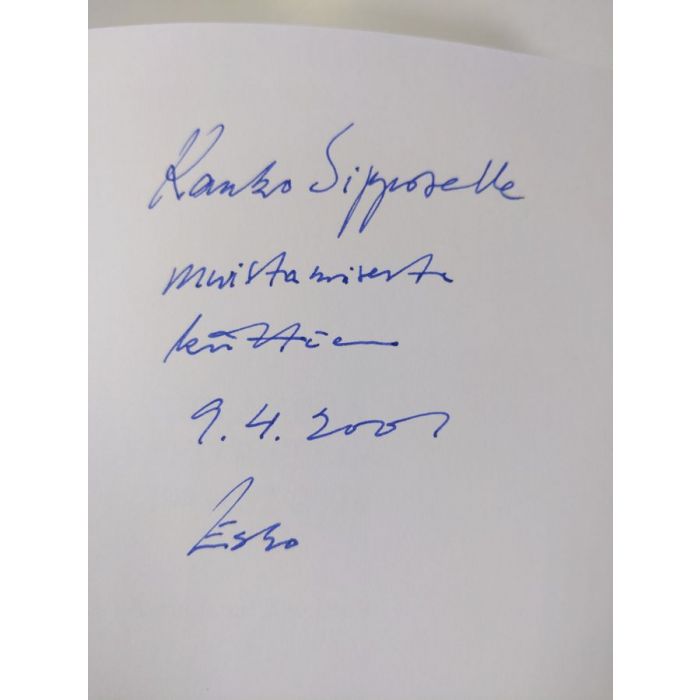 Kauko Sipposelle
muistamisesta
kiittäen
9.4.2001
Esko